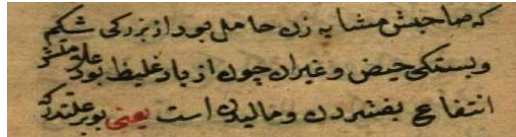 که صاحبش مشابه زن حامل بود از بزرکی شکم
وبستکی حیض و غیران چون از باد غلیظ بود علامتش
انتفاخ بفشردن و مالیدن است یعنی بوبر علتندکه